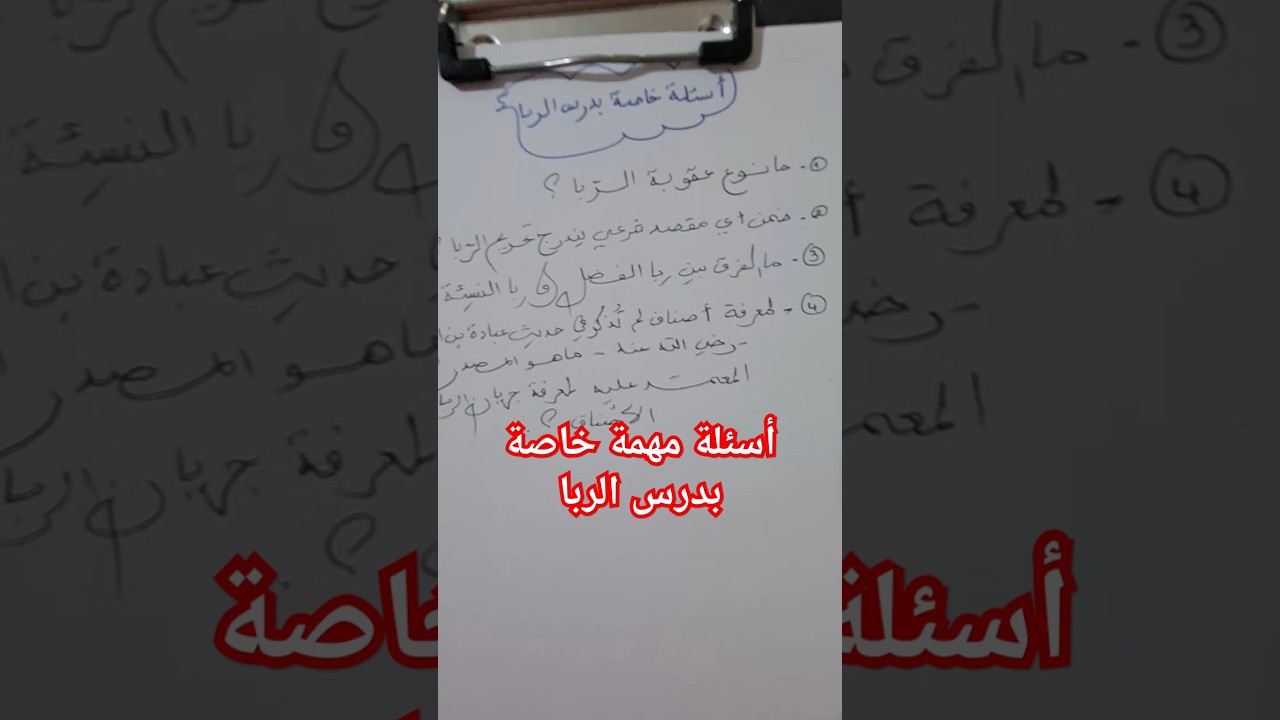 أسئلة خاصة بدرس الربا
①- ما نوع عقوبة الربا ؟
②- ضمن أي مقصد شرعي يندرج تحريم الربا
③- ما الفرق بين ربا الفضل و ربا النسيئة
④- لمعرفة أصناف لم تُذكر في حديث عبادة بن
- رضي الله عنه - ماهو المصدر
المعتمد عليه لمعرفة جريان الربا
الأصناف ؟
أسئلة مهمة خاصة
بدرس الربا